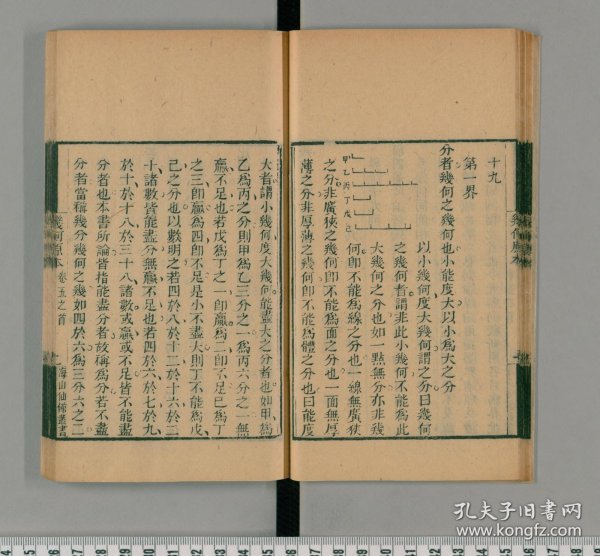 幾何原本
十九
第一界
分者幾何之幾何也小能度大以小爲大之分
以小幾何度大幾何謂之分曰幾何
之幾何者謂非此小幾何不能爲此
大幾何之分也如一點無分亦非幾
何卽不能爲線之分也一線無廣狹
甲乙丙丁戊己
之分非廣狹之幾何卽不能爲面之分也一面無厚
薄之分非厚薄之幾何卽不能爲體之分也曰能度
大者謂小幾何度大幾何能盡大之分者也如甲爲
乙爲丙之分則甲爲乙三分之一爲丙六分之一無
贏不足也若戊爲丁之一卽贏爲二卽不足己爲丁
之三卽贏爲四卽不足是小不盡大則丁不能爲戊
己之分也以數明之若四於八於十二於十六於二
十諸數皆能盡分無贏不足也若四於六於七於九
於十於十八於三十八諸數或贏或不足皆不能盡
分者也本書所論皆指能盡分者故稱爲分若不盡
分者當稱幾分幾何之幾如四於六爲三分六之二
幾何原本 卷五之首 海山仙館叢書
孔夫子旧书网
www.kongfz.com